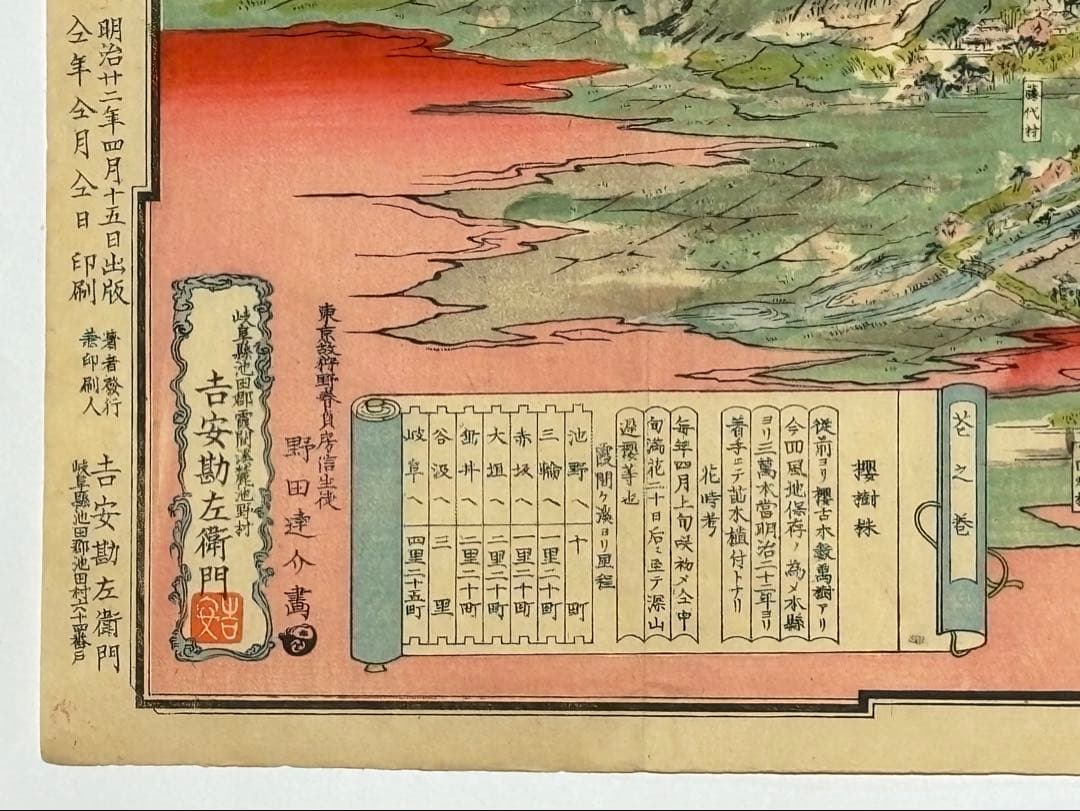 藤代村
花之巻
櫻樹株
従前ヨリ櫻古木數萬樹アリ
今回風地保存ノ為メ本縣
ヨリ三萬本當明治二十二年ヨリ
着手ニテ苗木植付トナリ
花時考
毎年四月上旬咲初メ仝中
旬満花二十日后ニ至テ深山
遅櫻等也
霞間ケ渓ヨリ里程
池野へ 十町
三輪へ 一里二十町
赤坂へ 一里二十町
大垣へ 二里二十町
垂井へ 二里二十町
谷汲へ 三里
岐阜へ 四里二十五町
東京故狩野春貞房信生徒
野田達介畫
岐阜縣池田郡霞間渓麓池野村
吉安勘左衛門
吉安
明治廿二年四月十五日出版
仝年仝月仝日印刷
著者發行
兼印刷人
吉安勘左衛門
岐阜縣池田郡池田村六十四番戸